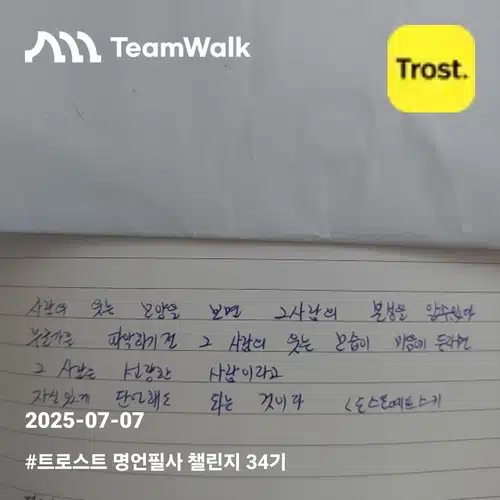 TeamWalk
Trost.
사람의 웃는 모양을 보면 그사람의 본성을 알수있다
누군가를 파악하기전 그 사람의 웃는 모습이 마음에 든다면
그 사람은 선량한 사람이라고
자신있게 단언해도 되는 것이다 <도스토예프스키
2025-07-07
#트로스트 명언필사 챌린지 34기